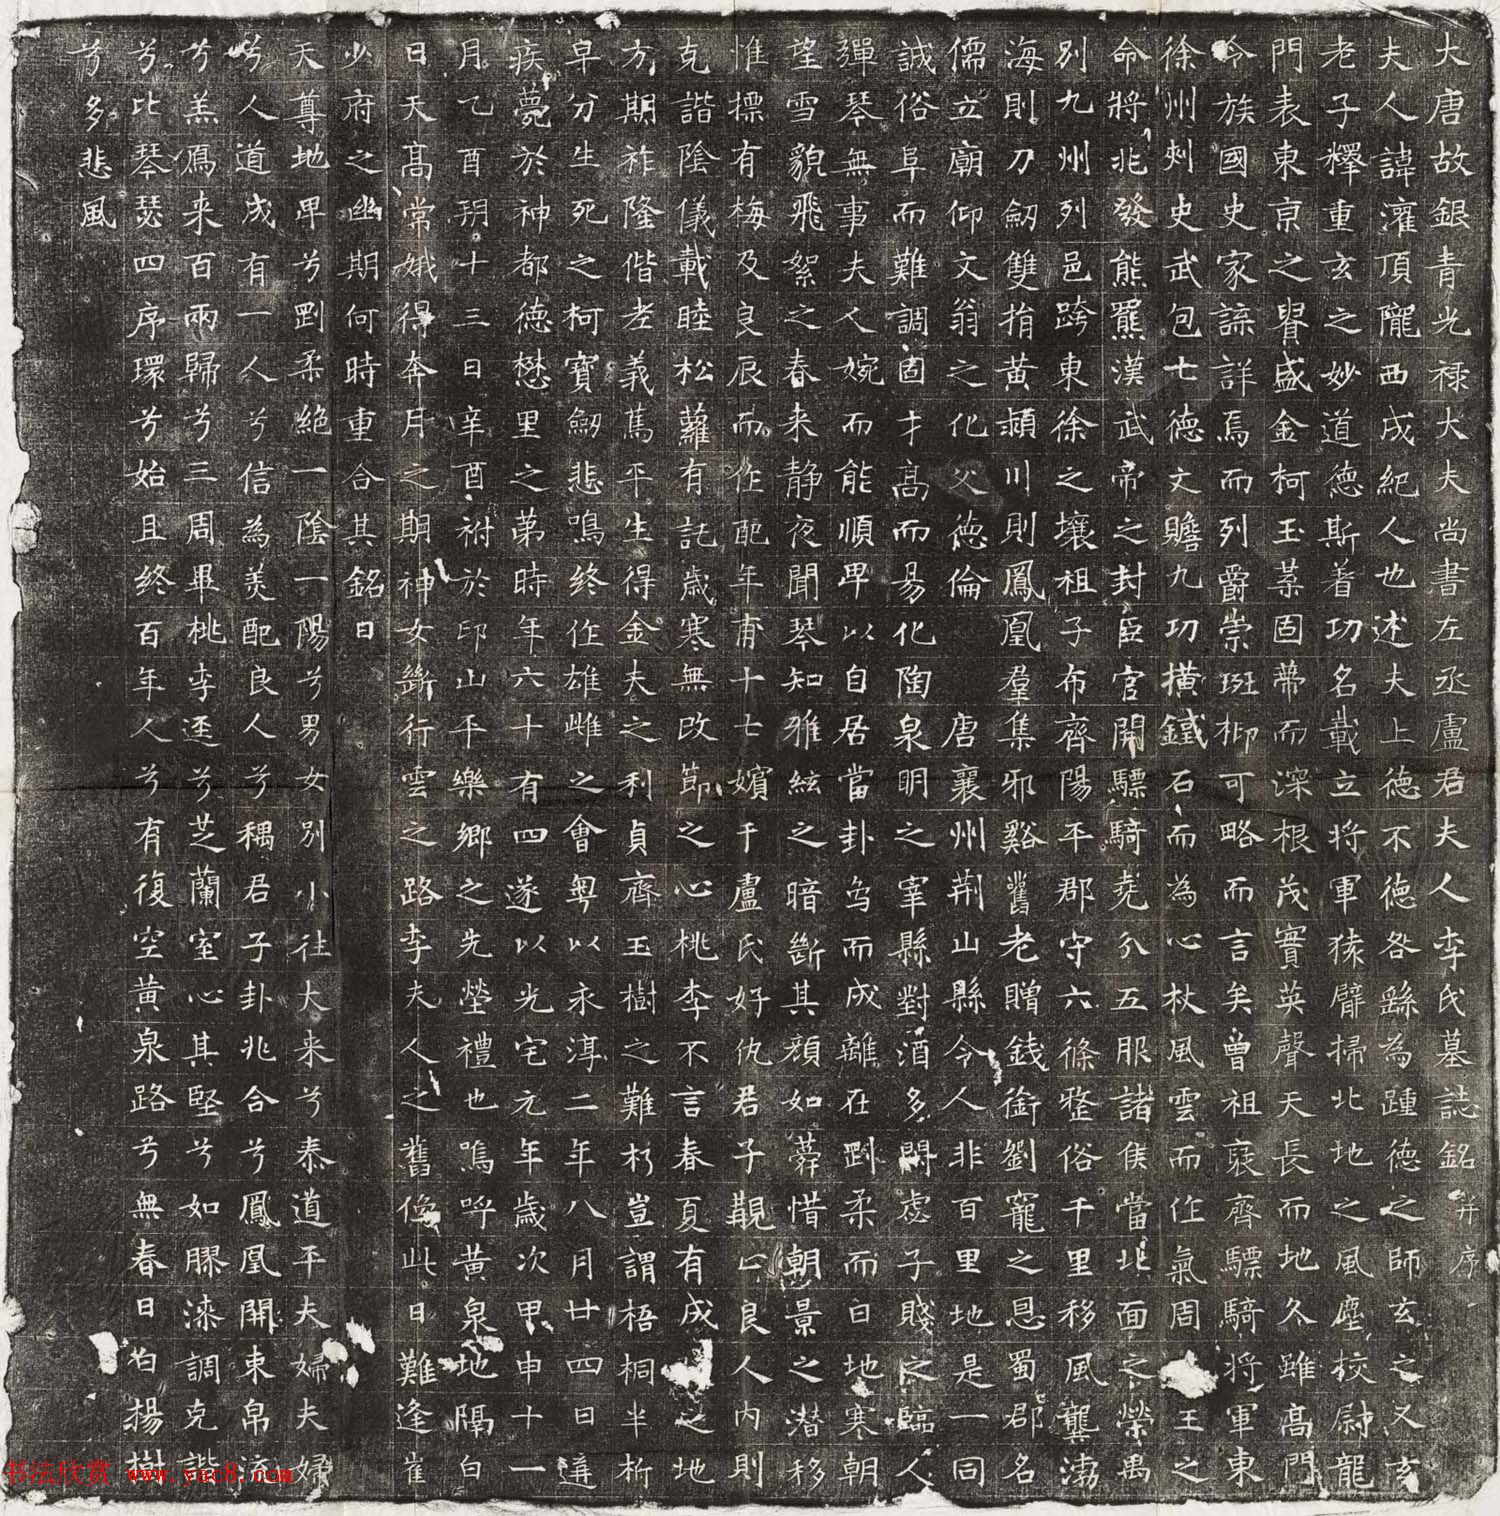 大唐故銀青光祿大夫尚書左丞盧君夫人李氏墓誌銘并序
夫人諱灌頂隴西成紀人也述夫上德不德咎繇為踵德之師玄之又玄
老子釋重玄之妙道德斯着功名載立將軍猿臂掃北地之風塵校尉龍
門表東京之譽盛金柯玉葉固蒂而深根茂實英聲天長而地久雖高門
令族國史家諜詳焉而列爵崇班抑可略而言矣曾祖裒齊驃騎將軍東
徐州刺史武包七德文贍九功橫鐵石而為心秋風雲而作氣周王之
命將兆發熊羆漢武帝之封臣官開驃騎堯分五服諸侯當北面之榮禹
別九州列邑跨東徐之壤祖子布齊陽平郡守六條整俗千里移風龔渤
海則刀劒雙捐黃潁川則鳳凰羣集邪谿舊老贈錢銜劉寵之恩蜀郡名
儒立廟仰文翁之化父德倫唐襄州荊山縣令人非百里地是一同
誠俗阜而難調固才高而易化陶泉明之宰縣對酒多閑宓子賤之臨人
彈琴無事夫人婉而能順卑以自居當卦鳥而成離在剛柔而白地寒朝
望雪貌飛絮之春來靜夜聞琴知雅絃之暗斷其顏如蕣惜朝景之潛移
惟摽有梅及良辰而作配年甫十七嬪于盧氏好仇君子覯止良人內則
克諧陰儀載睦松蘿有託歲寒無改節之心桃李不言春夏有成之地
方期祚隆偕老義篤平生得金夫之利貞齊玉樹之難朽豈謂梧桐半折
早分生死之柯寶劒悲鳴終作雄雌之會粵以永淳二年八月廿四日遘
疾薨於神都德懋里之第時年六十有四遂以光宅元年歲次甲申十一
月乙酉玥十三日辛酉祔於邙山平樂鄉之先塋禮也嗚呼黃泉地隔白
日天高常娥得奔月之期神女斷行雲之路李夫人之舊像此日難逢崔
少府之幽期何時重合其銘曰
天尊地卑兮剛柔絕一陰一陽兮男女別小往大來兮泰道平夫婦夫婦
兮人道成有一人兮信為美配良人兮稱君子卦兆合兮鳳凰開束帛流
兮羔鴈來百兩歸兮三周畢桃李逕兮芝蘭室心其堅兮如膠漆調克諧
兮比琴瑟四序環兮始且終百年人兮有復空黃泉路兮無春日白楊樹
兮多悲風
书法欣赏 www.yac8.com